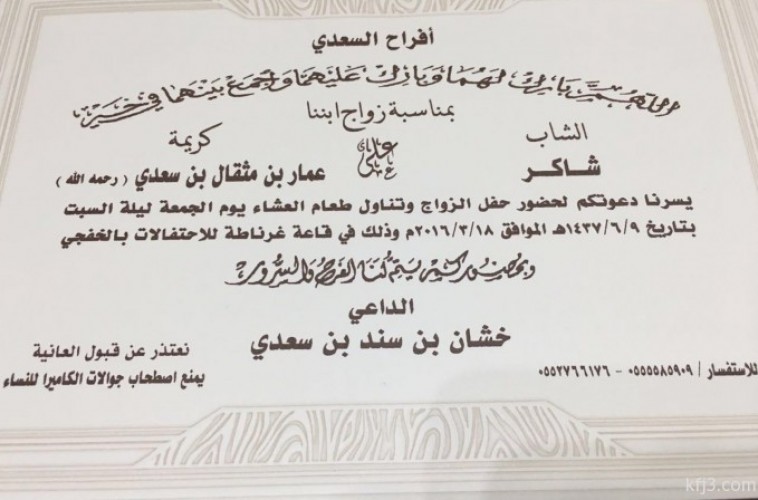 أفراح السعدي
اللهم بارك لهما وبارك عليهما واجمع بينهما في خير
بمناسبة زواج ابننا
الشاب
كريمة
شاكر
على
عمار بن مثقال بن سعدي ( رحمه الله )
يسرنا دعوتكم لحضور حفل الزواج وتناول طعام العشاء يوم الجمعة ليلة السبت
بتاريخ ١٤٣٧/٦/٩هـ الموافق ٢٠١٦/٣/١٨م وذلك في قاعة غرناطة للاحتفالات بالخفجي
وبحضوركم يتم لنا الفرح والسرور
الداعي
خشان بن سند بن سعدي
نعتذر عن قبول العانية
يمنع اصطحاب جوالات الكاميرا للنساء
للاستفسار / ٠٥٥٥٥٨٥٩٠٩ - ٠٥٥٢٧٦٦١٧٦
kfj3.com